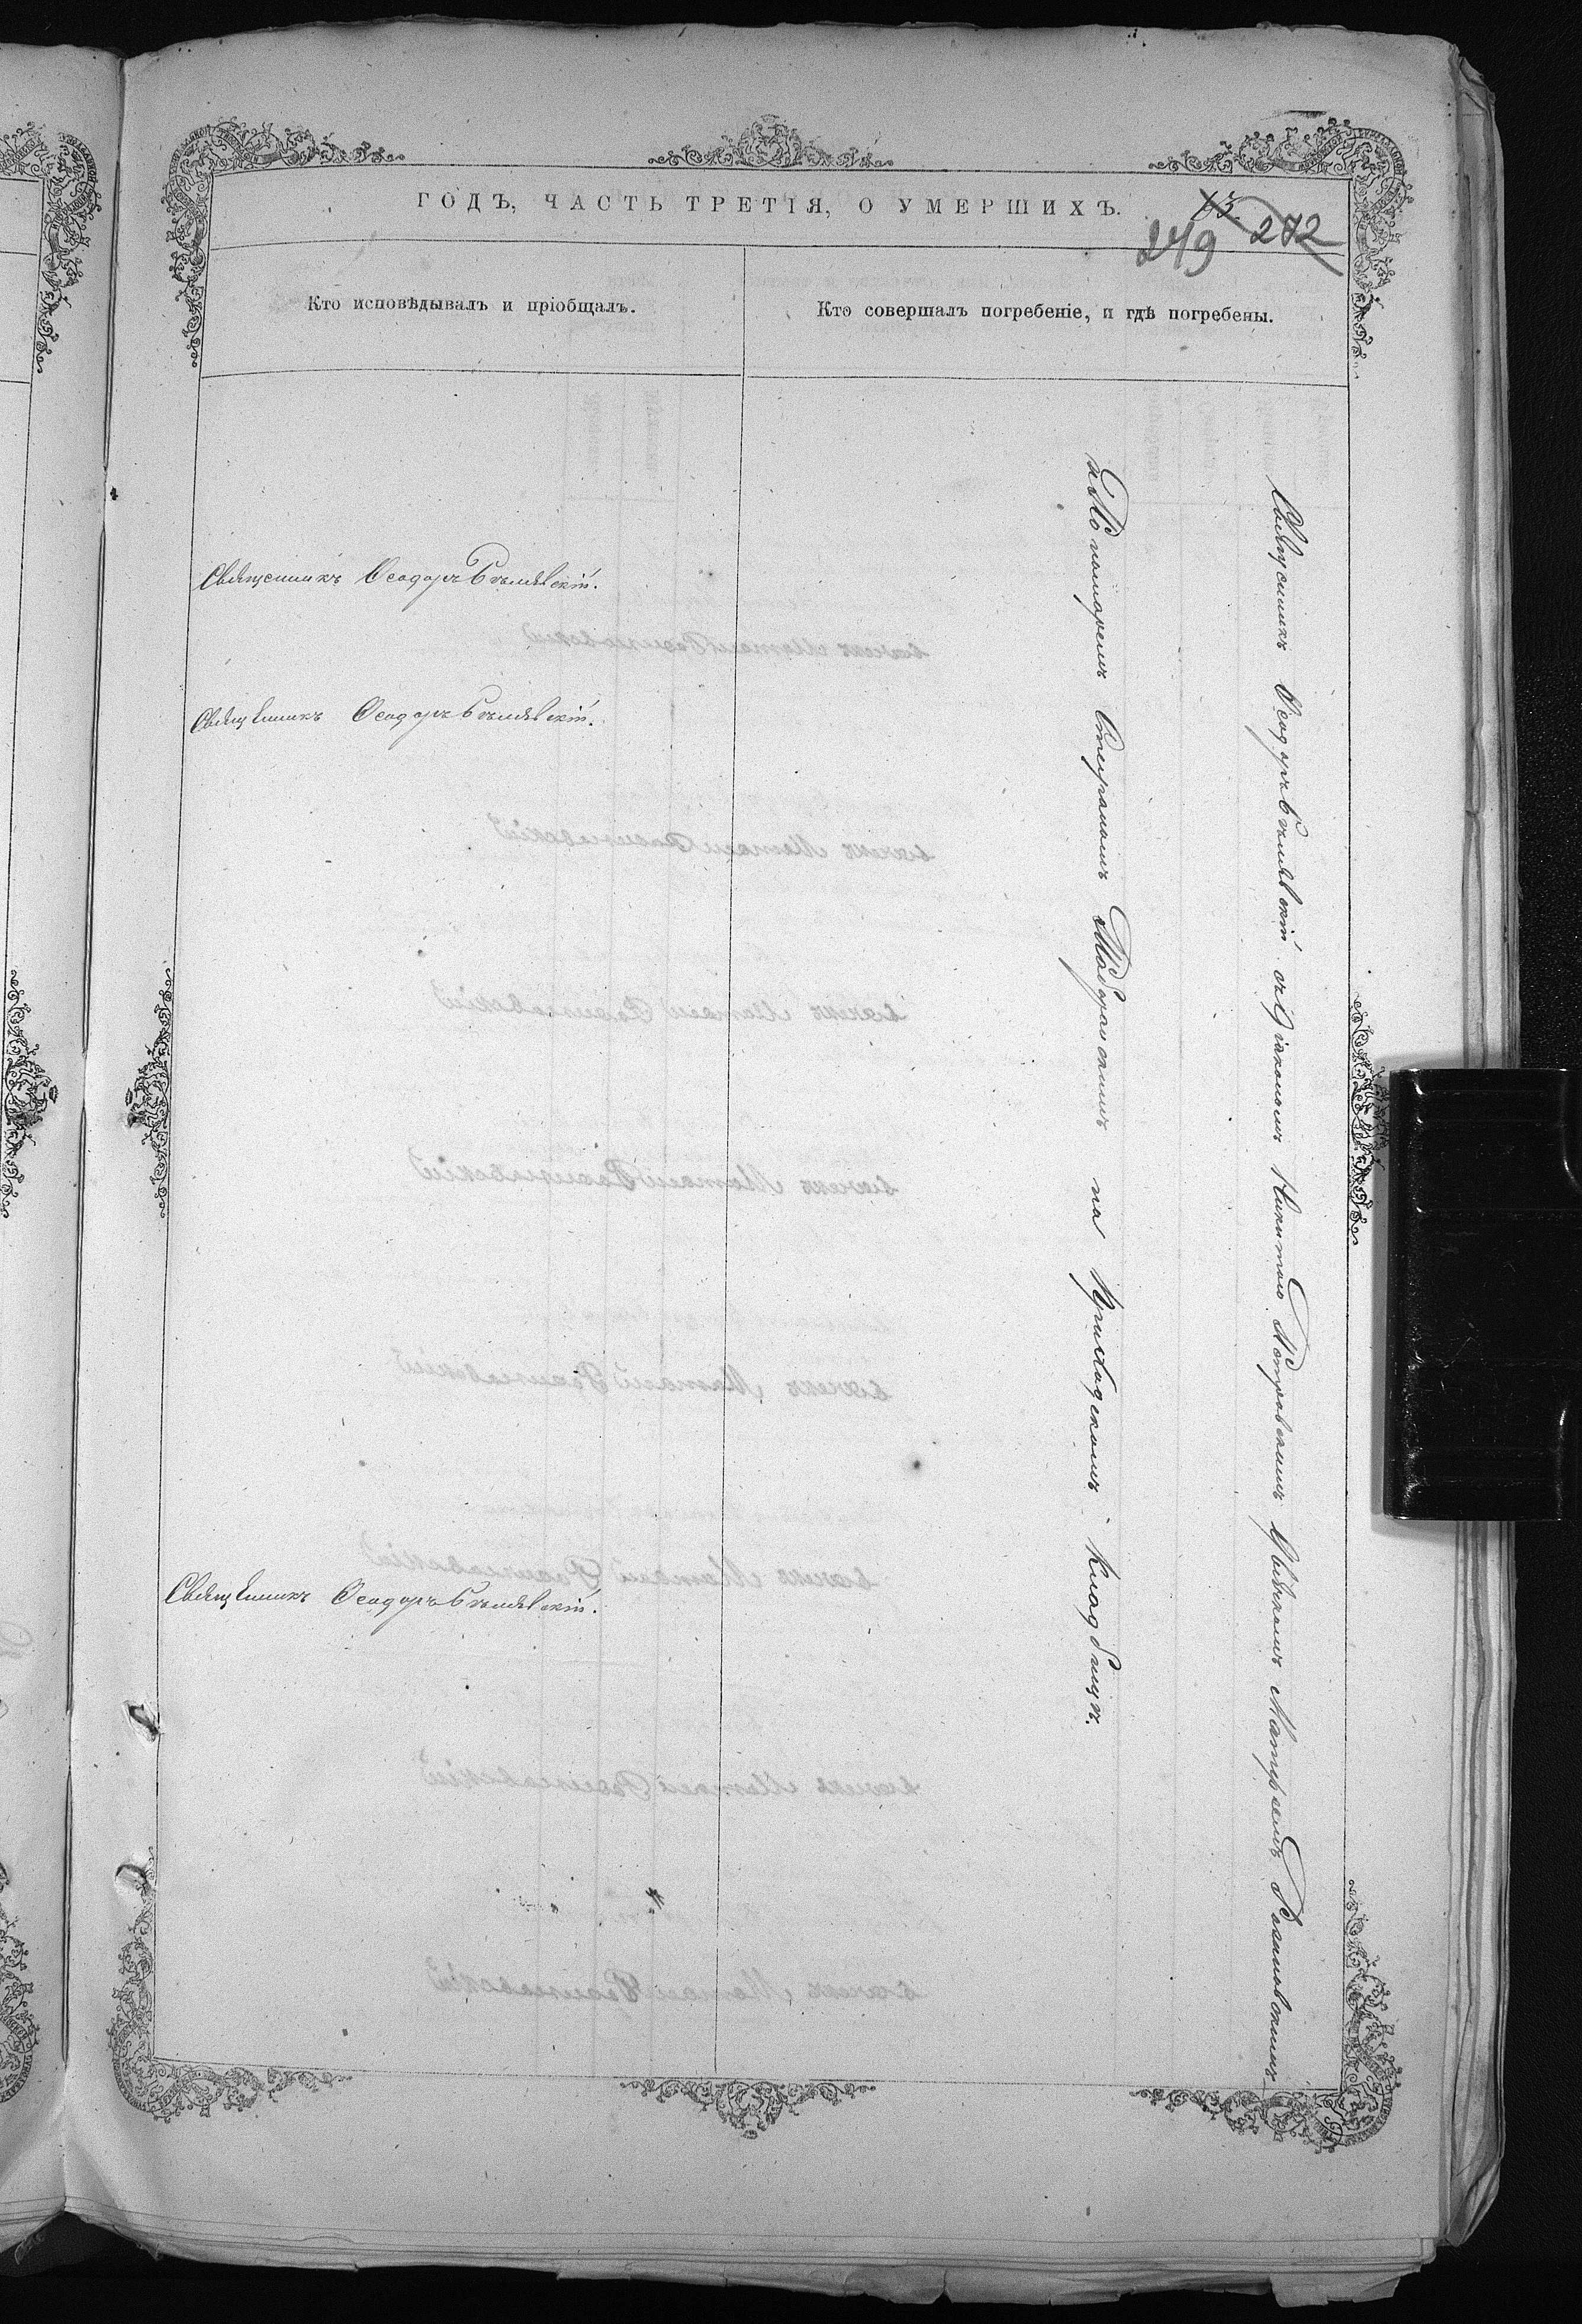 ГОДЪ, ЧАСТЬ ТРЕТІЯ, О УМЕРШИХЪ.
13.
249 272
Кто исповѣдывалъ и пріобщалъ.
Кто совершалъ погребеніе, и гдѣ погребены.
Священникъ Ѳеодоръ Бѣлявскій.
Священникъ Ѳеодоръ Бѣлявскій.
Священникъ Ѳеодоръ Бѣлявскій.
Священникъ Ѳеодоръ Бѣлявскій съ Діакономъ Никитою Петровскимъ Дьячкомъ Матѳеемъ
и Пономаремъ Стефаномъ на Приходскомъ кладбищѣ.